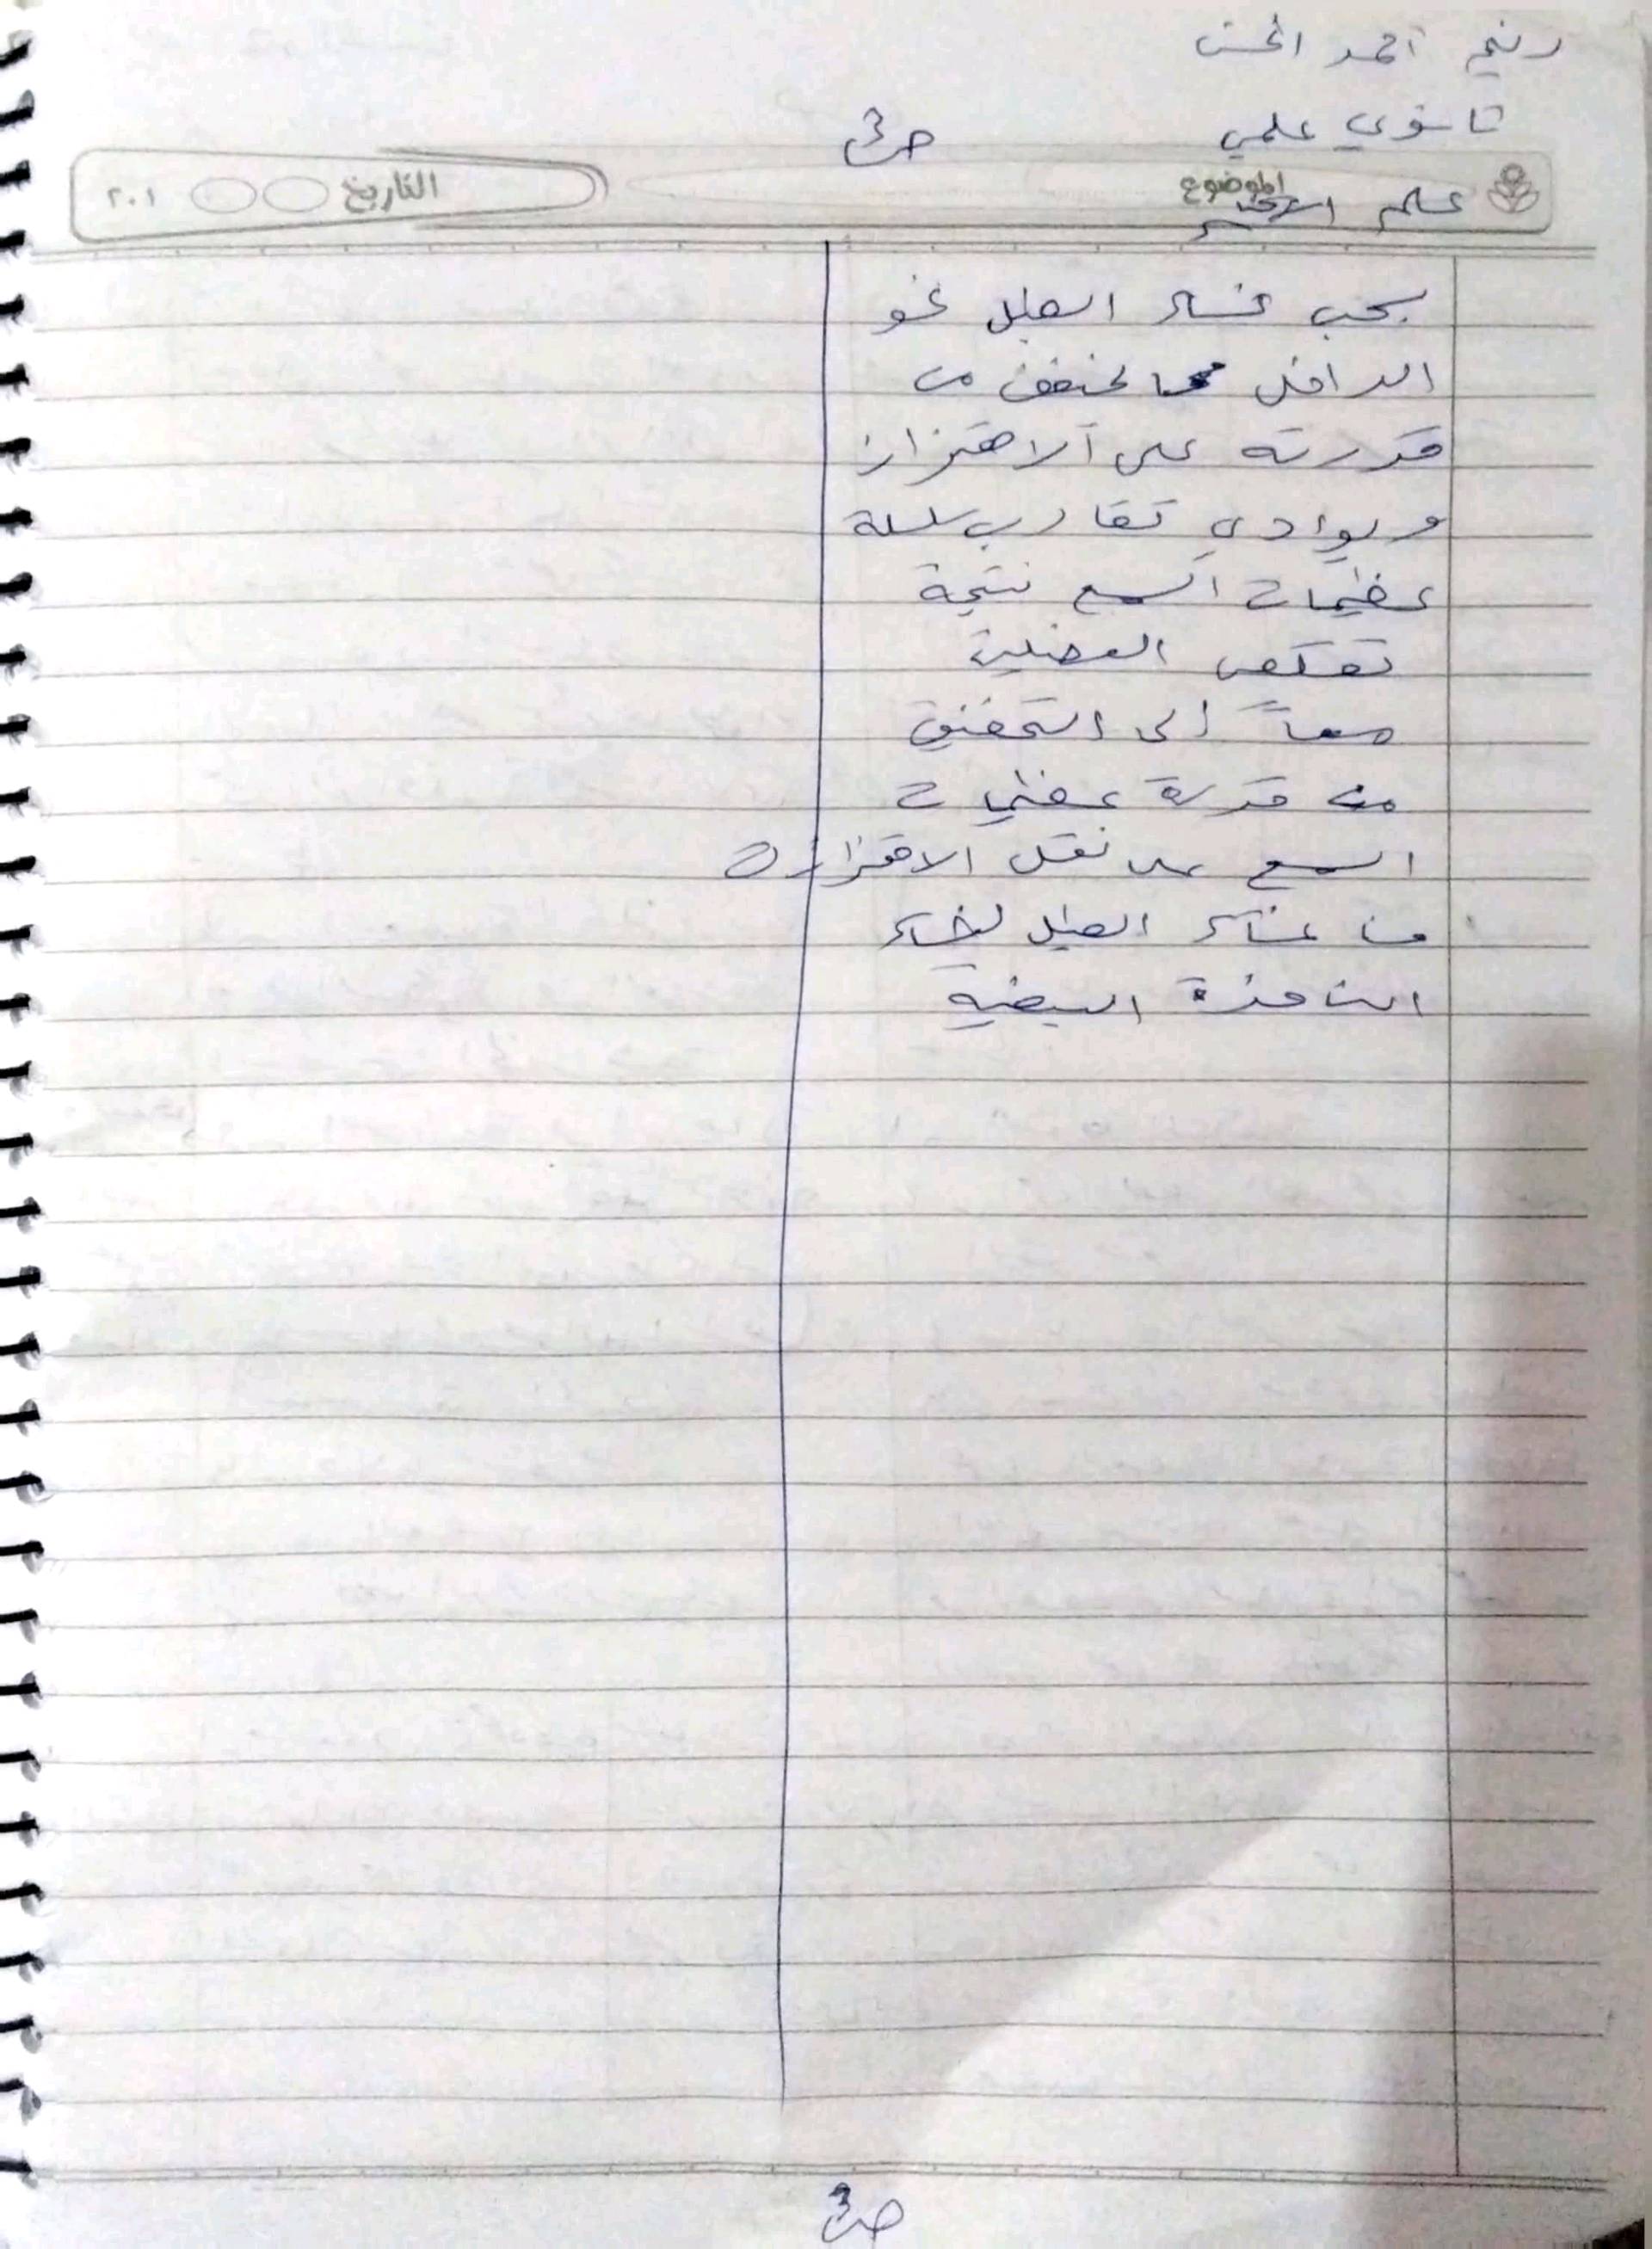 رنيم احمد الحسن
ثانوي علمي
ص3
الموضوع
التاريخ
٢٠١
علم الاحياء
يسحب غشاء الطبل نحو
الداخل مما يخفف من
قدرته على الاهتزاز
ويوادي تقارب سلسلة
عظيمات السمع نتيجة
تقلص العضلين
معاً الى التخفيف
من قدرة عظيمات
السمع على نقل الاهتزازات
من غشاء الطبل لغشاء
النافذة البيضية
ص3